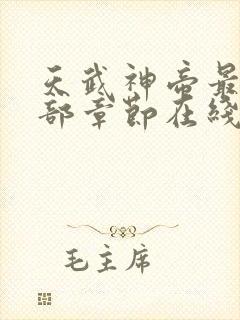 天武神帝最
部章节在线
毛主席